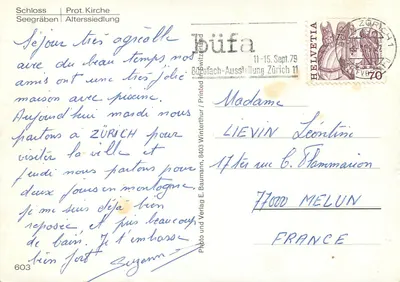 Schloss | Prot. Kirche
Seegräben | Alterssiedlung
Séjour très agréable
avec du beau temps nos
amis ont une très jolie
maison avec piscine.
Aujourd'hui mardi nous
partons à ZÜRICH pour
visiter la ville et
jeudi nous partons pour
deux jours en montagne,
je me suis déjà bien
reposée et pris beaucoup
de bain. Je t'embrasse
bien fort
Suzanne
603
Photo und Verlag E. Baumann, 8403 Winterthur / Printed
büfa
11.-15. Sept. 79
Bürofach-Ausstellung Zürich 11
HELVETIA
70
ZÜRICH 1
Madame
LIEVIN Léontine
17 ter rue C. Flammarion
77000 MELUN
FRANCE